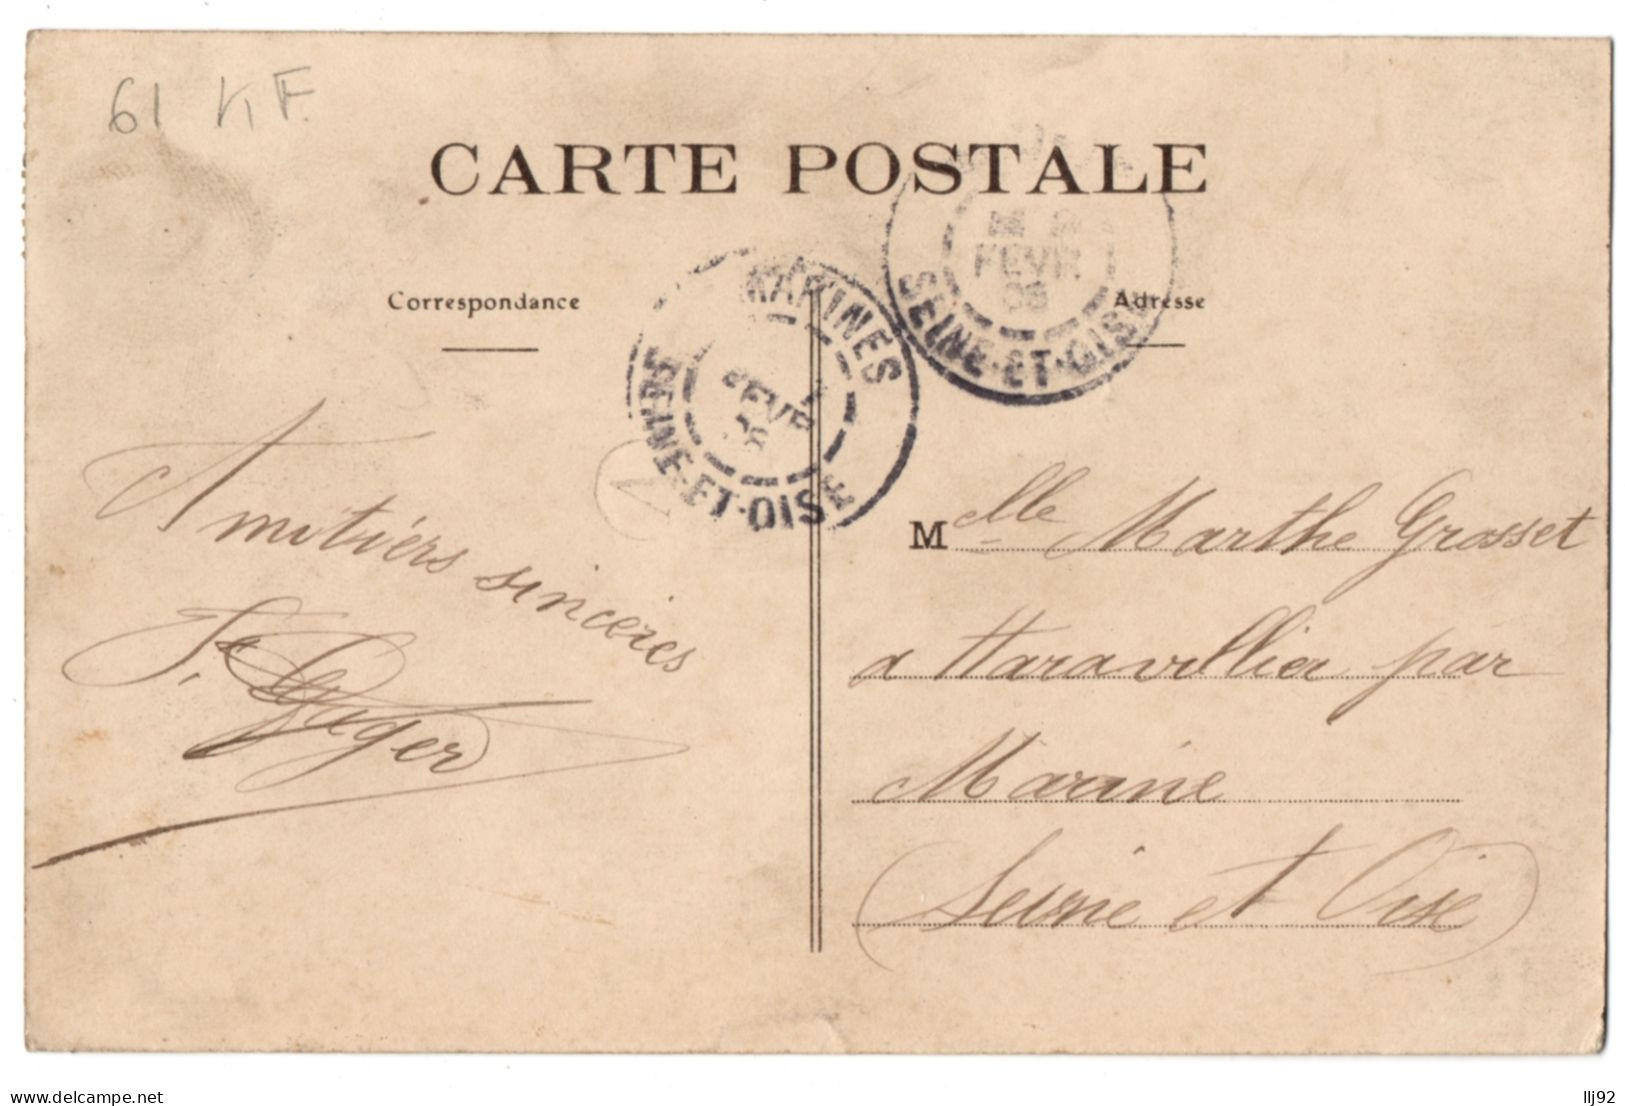 61 K F.
CARTE POSTALE
Correspondance
Adresse
MARINES
FEVR
SEINE-ET-OISE
FEVR
SEINE-ET-OISE
Amitiérs sincères
Melle Marthe Grosset
a Haravillier par
Marine
(Seine et Oise)
delcampe.net
llj92